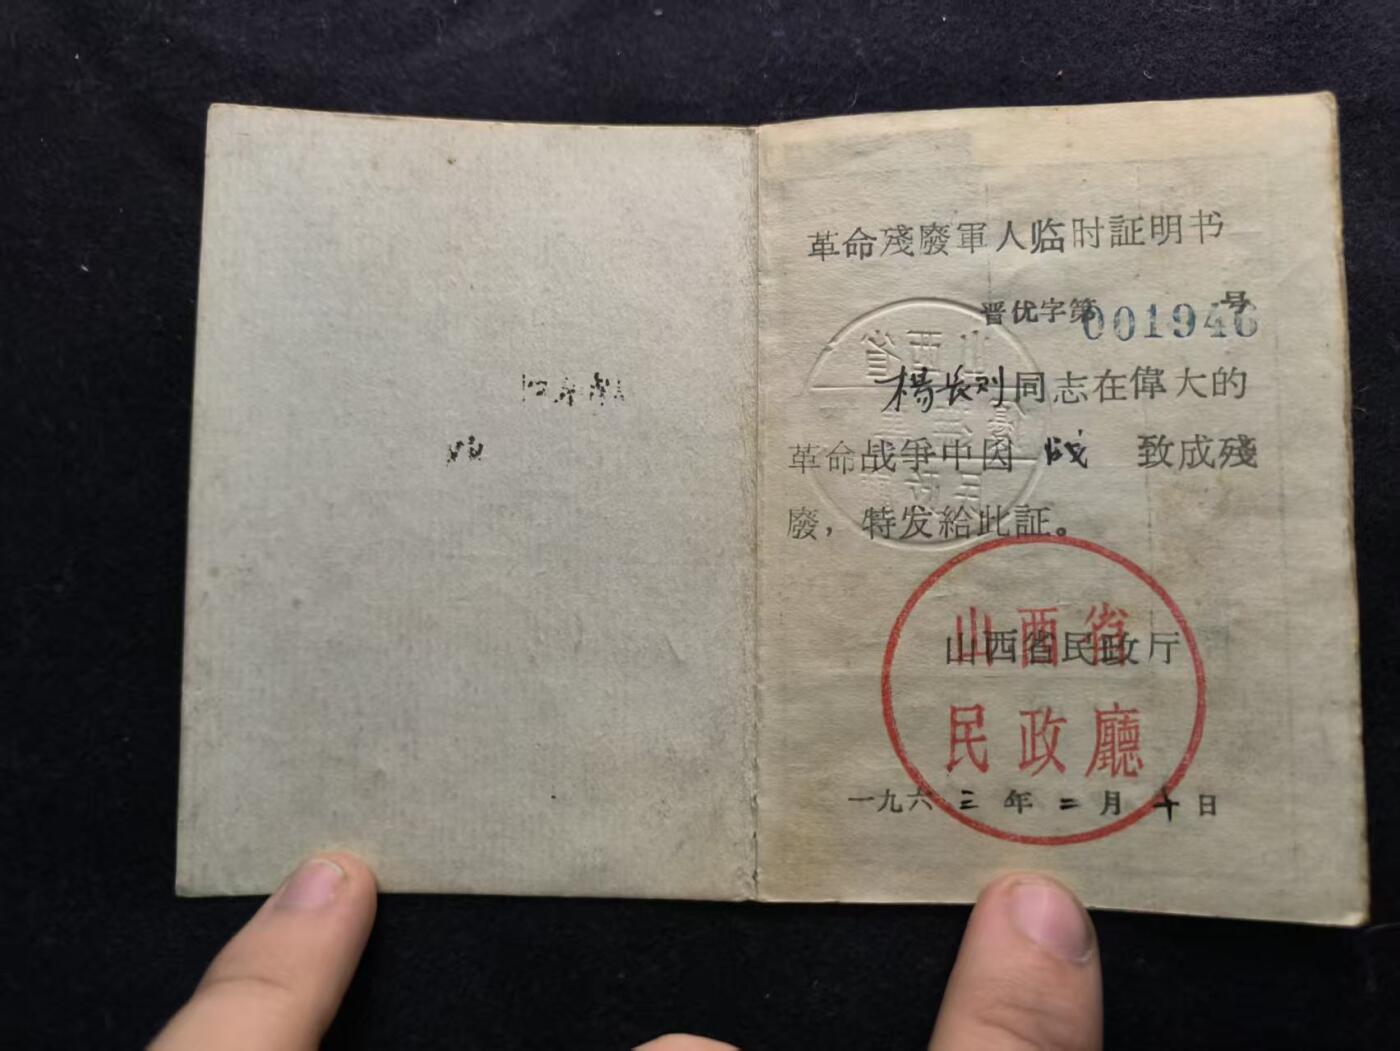 革命殘廢軍人临时証明书
晋优字第001946号
楊长刘同志在偉大的
革命战爭中因 战 致成殘
廢，特发給此証。
山西省民政厅
山西省
民政廳
一九六三年二月十日